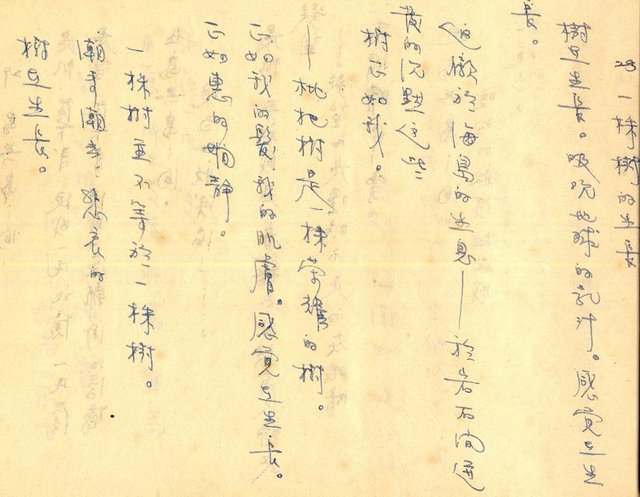 28 一株樹的生長
樹在生長。吸吮地球的乳汁。感覺在生
長。
於海島的生息——於岩石間
的沉默這些
樹正如我。
——枇杷樹是一株榮耀的樹。
正如我的髮,我的肌膚。感覺在生長。
正如惠的嫻靜。
一株樹並不等於一株樹。
潮來潮去,悲哀的
樹在生長。